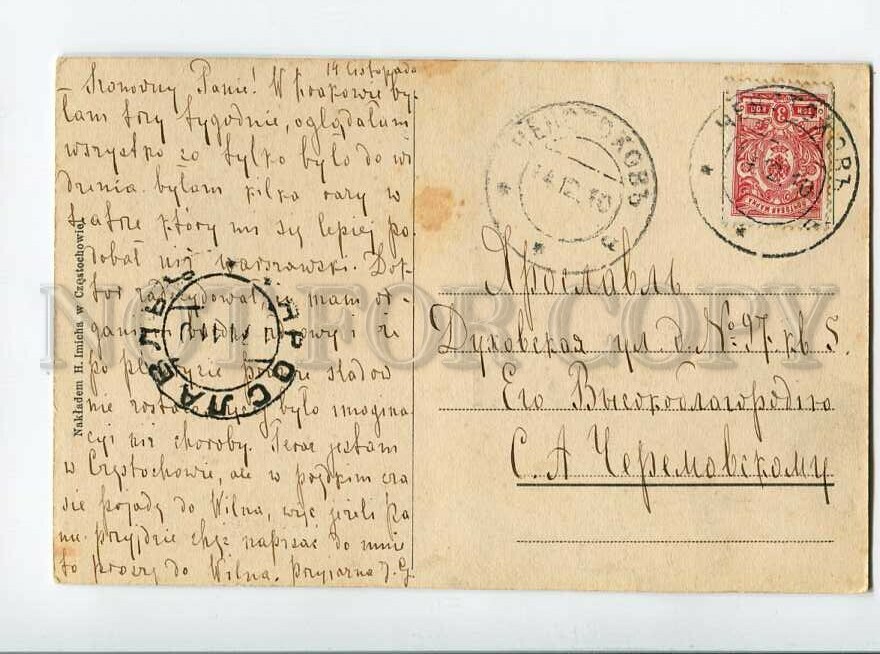 14 Listopada
Szanowny Panie! W Krakowie by-
łam trzy tygodnie, oglądałam
wszystko co tylko było do wi
dzenia byłam kilka razy w
który mi się lepiej po
dobał niż warszawski. Dok
tor mam or-
gani zdrowy i że
po
nie było imagina
cyi niż choroby. Teraz jestem
w Częstochowie, ale w prędkim cza
sie pojadę do Wilna, więc jeżeli pa
nu przyjdzie chęć napisać do mnie
to proszę do Wilna. Przyjazna J. G.
Nakładem H. Imicha w Częstochowie.
ЯРОСЛАВЛЬ
ЧЕНСТОХОВЪ
14.12.10
ЧЕНСТОХОВЪ
3 КОП
ПОЧТОВАЯ МАРКА
Ярославль
Духовская ул д. № 97. кв 5.
Его Высокоблагородію
С. А Черемовскому
NOT FOR COPY